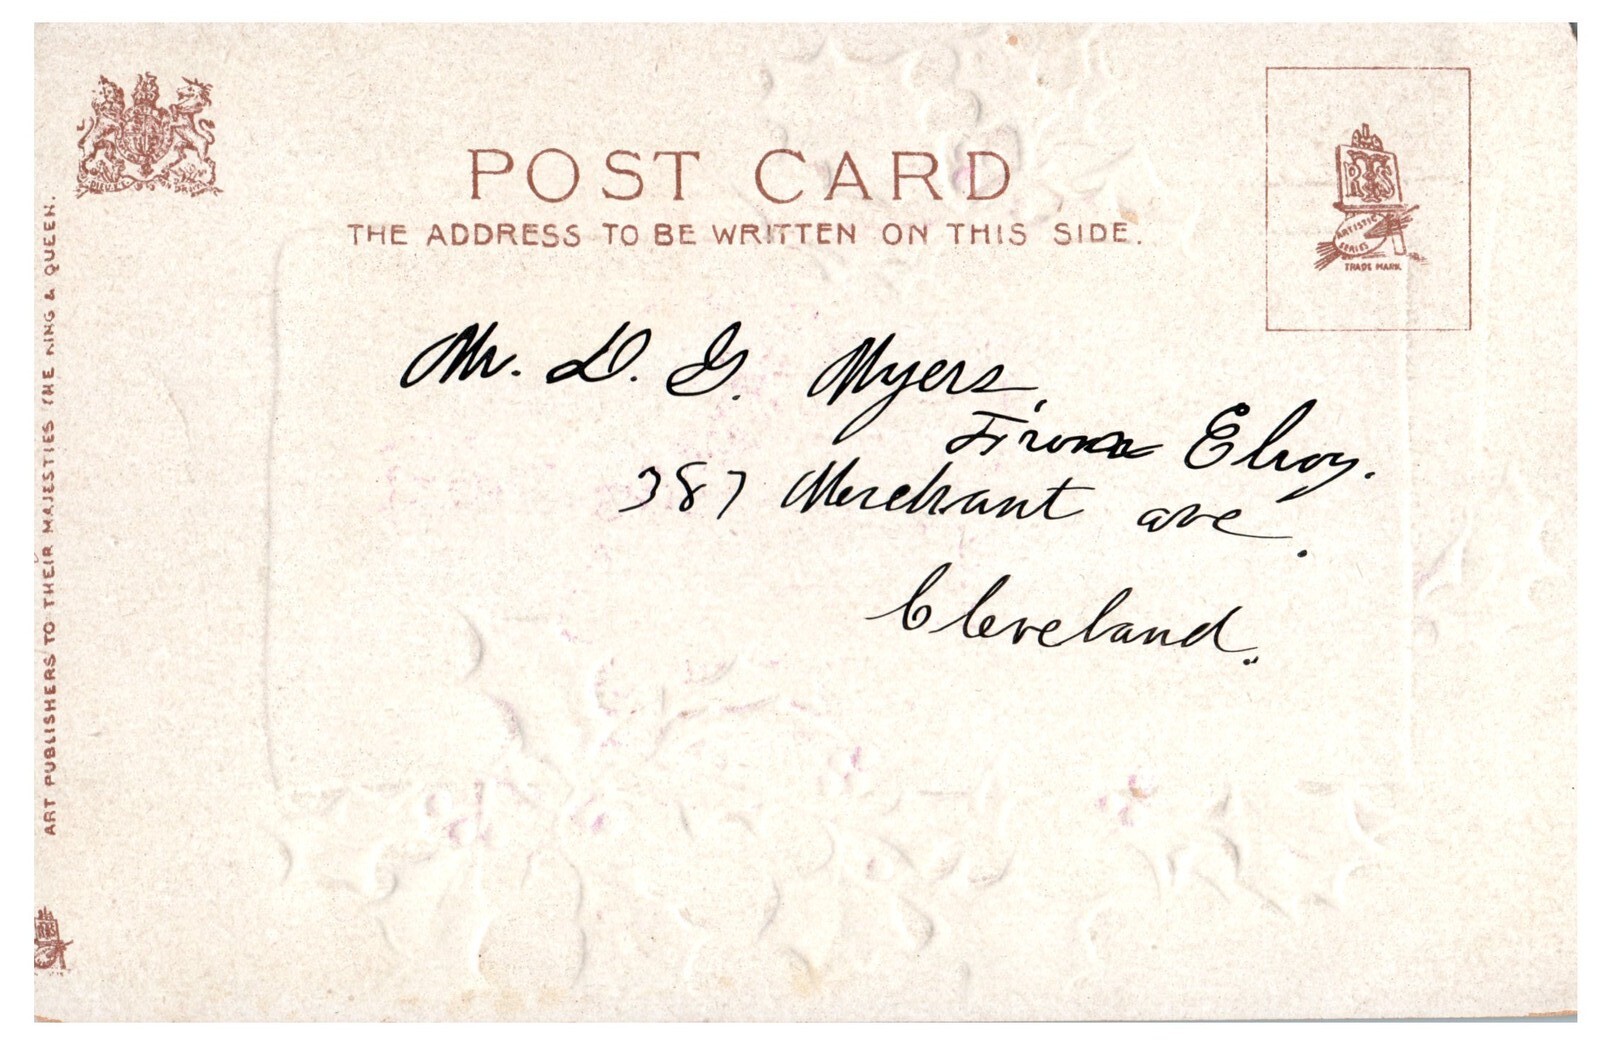 POST CARD
THE ADDRESS TO BE WRITTEN ON THIS SIDE.
RTS
ARTISTIC
SERIES
TRADE MARK.
Mr. D. G. Myers,
From Elroy.
387 Merchant ave.
Cleveland.
ART PUBLISHERS TO THEIR MAJESTIES THE KING & QUEEN.